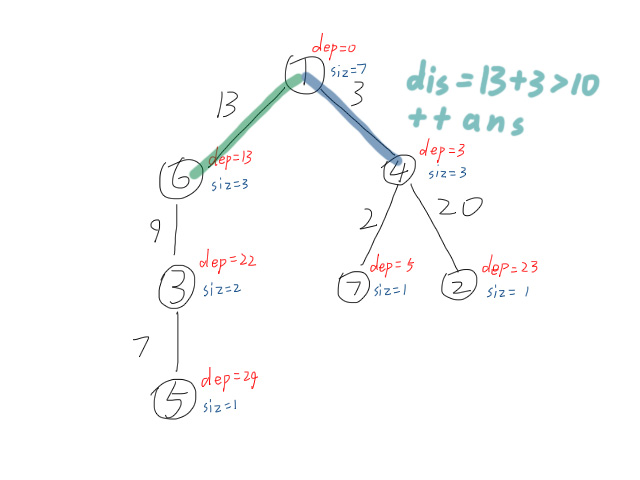 dep=0
1
siz=7
dis=13+3>10
++ans
13
3
dep=13
6
siz=3
dep=3
4
siz=3
9
2
20
dep=22
3
siz=2
dep=5
7
siz=1
dep=23
2
siz=1
7
dep=29
5
siz=1